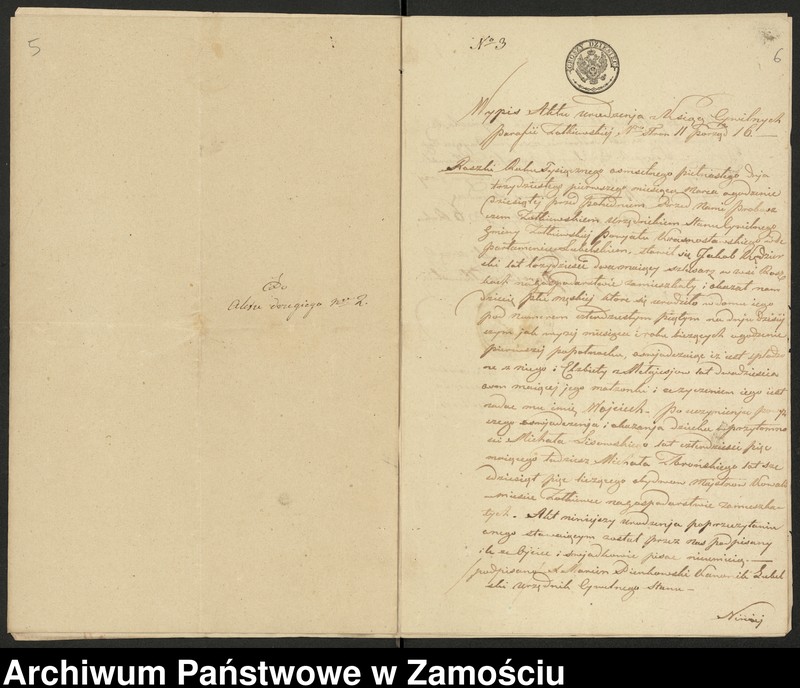 5
Do
Aktu drugiego No 2.
No 3
6
GROSZY DZIESIĘĆ
Wypis Aktu Urodzenia z Księg Cywilnych
Parafii Żółkiewskiej, Nro Stron 11 Porząd 16. —
Raszki Roku Tysiącznego osmsetnego piętnastego dnia
trzydziestego pierwszego miesiąca Marca o godzinie
dziesiątej przed południem. Przed Nami Probosz
czem Żółkiewskiem Urzędnikiem Stanu Cywilnego
Gminy Żółkiewskiej Powiatu Krasnostawskiego w De
partamencie Lubelskiem, stawił się Jakub
ski lat trzydzieści dwa maiący w wsi Rasz
kach na gospodarstwie zamieszkały i okazał nam
dziecię płci męskiej które się urodziło w domu iego
pod numerem czwdziestym piątym na dniu dzisiej
szym jak wyżej miesiąca i roku bieżących o godzinie
pierwszej po północku, oświadczając iż iest spłodzo
ne z niego i Elżbiety z lat dwadzieścia
osm maiącej jego małżonki i że życzeniem iego iest
nadać mu imię Wojciech. Po uczynieniu
szego oświadczenia i okazania dziecka w przytomno
ści Michała Lisowskiego lat czterdzieści pięć
maiącego tudzież Michała Zbrońskiego lat sze
śdziesiąt pięć liczącego obydwóch Majstrów Kowals
mieście Żółkiewce na gospodarstwie zamieszka-
łych. Akt niniejszy urodzenia po przeczytaniu
onego stawaiącym został przez nas podpisany
ile że Ojciec i świadkowie pisać nieumieią. —
podpisany X Marcin Pienkowski Kanonik Lubel
ski Urzędnik Cywilnego Stanu —
Niniej
Archiwum Państwowe w Zamościu